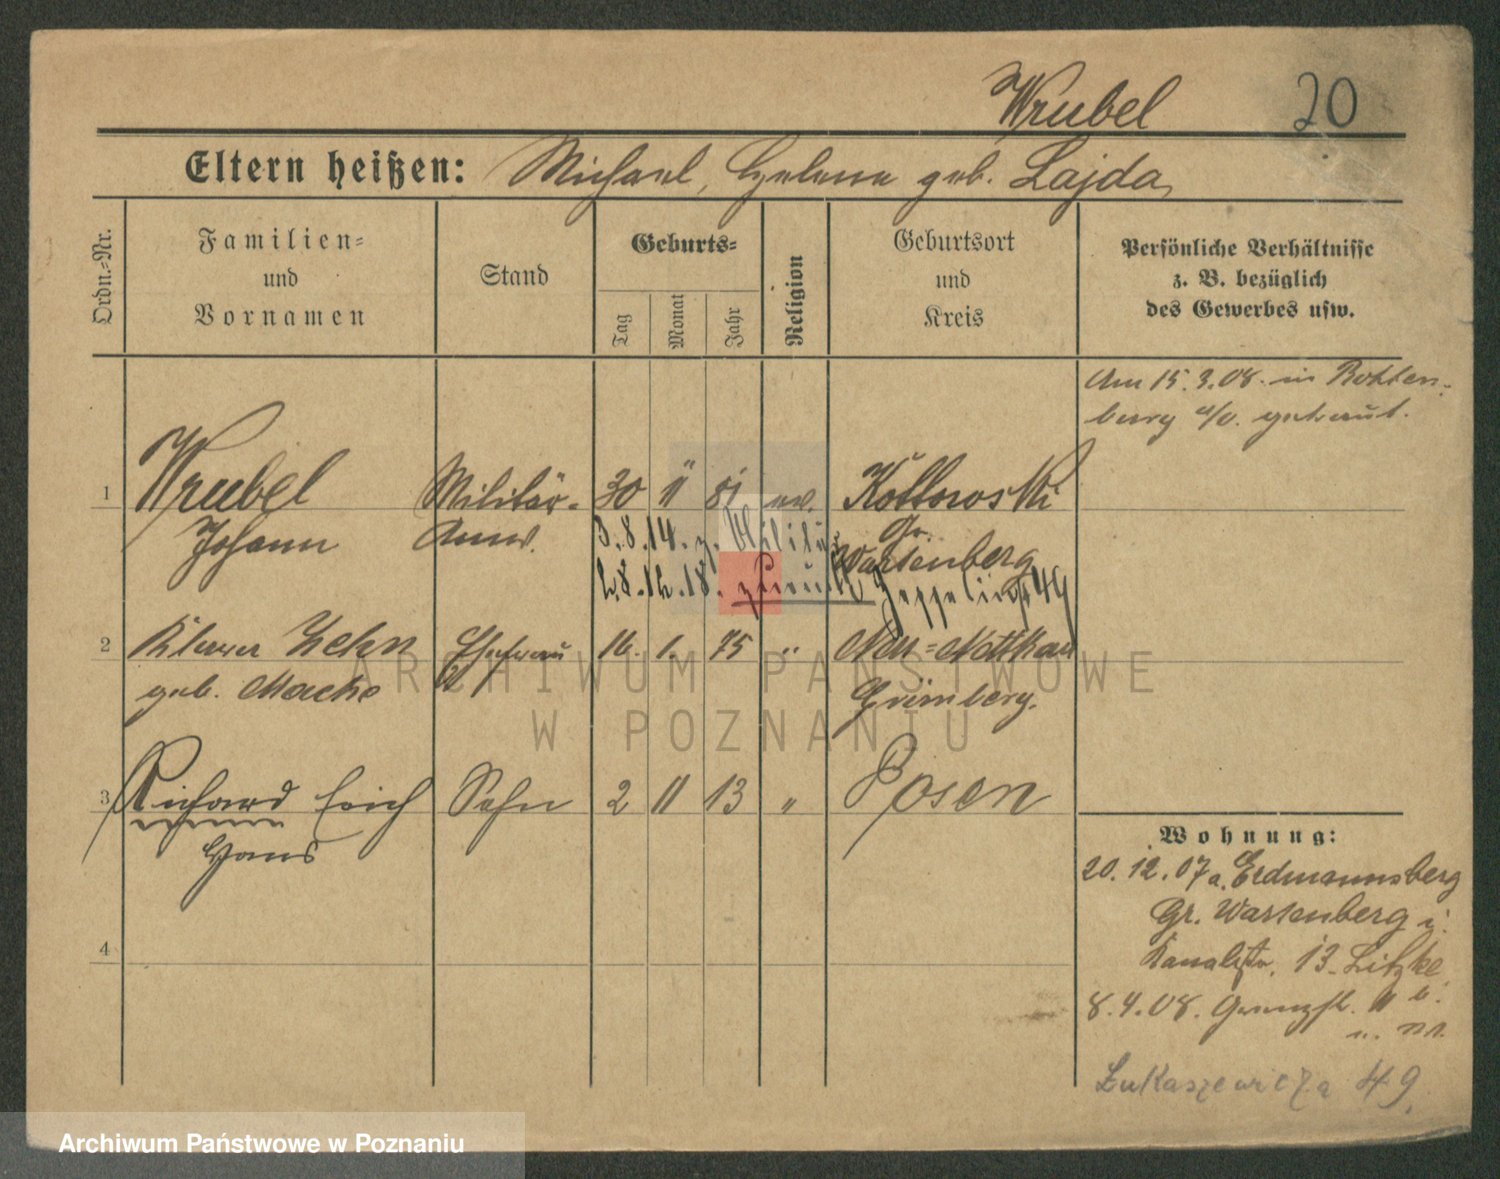 Wrubel 20
Eltern heißen: Michael, Helene geb. Lajda
Ordn.-Nr.
Familien-
und
Vornamen
Stand
Geburts-
Tag
Monat
Jahr
Religion
Geburtsort
und
Kreis
Persönliche Verhältnisse
z. B. bezüglich
des Gewerbes usw.
Am 15.3.08. in Rotten-
burg a/O. getraut.
1 Wrubel Militär- 30 11 81 ev.
Johann Anw.
3.8.14. z. Militär
28.12.18. zurück
Gr.
Wartenberg
2 Zehn Ehefrau 16. 1. 75 "
geb. Macke
Grünberg.
3 Richard Erich Sohn 2 11 13 " Posen
Hans
4
Wohnung:
20.12.07 a. Erdmannsberg
Gr. Wartenberg i.
Kanalstr. 13. Litzke
8.4.08. Grenzstr. 11
Łukaszewicza 49.
ARCHIWUM PAŃSTWOWE
W POZNANIU
Archiwum Państwowe w Poznaniu